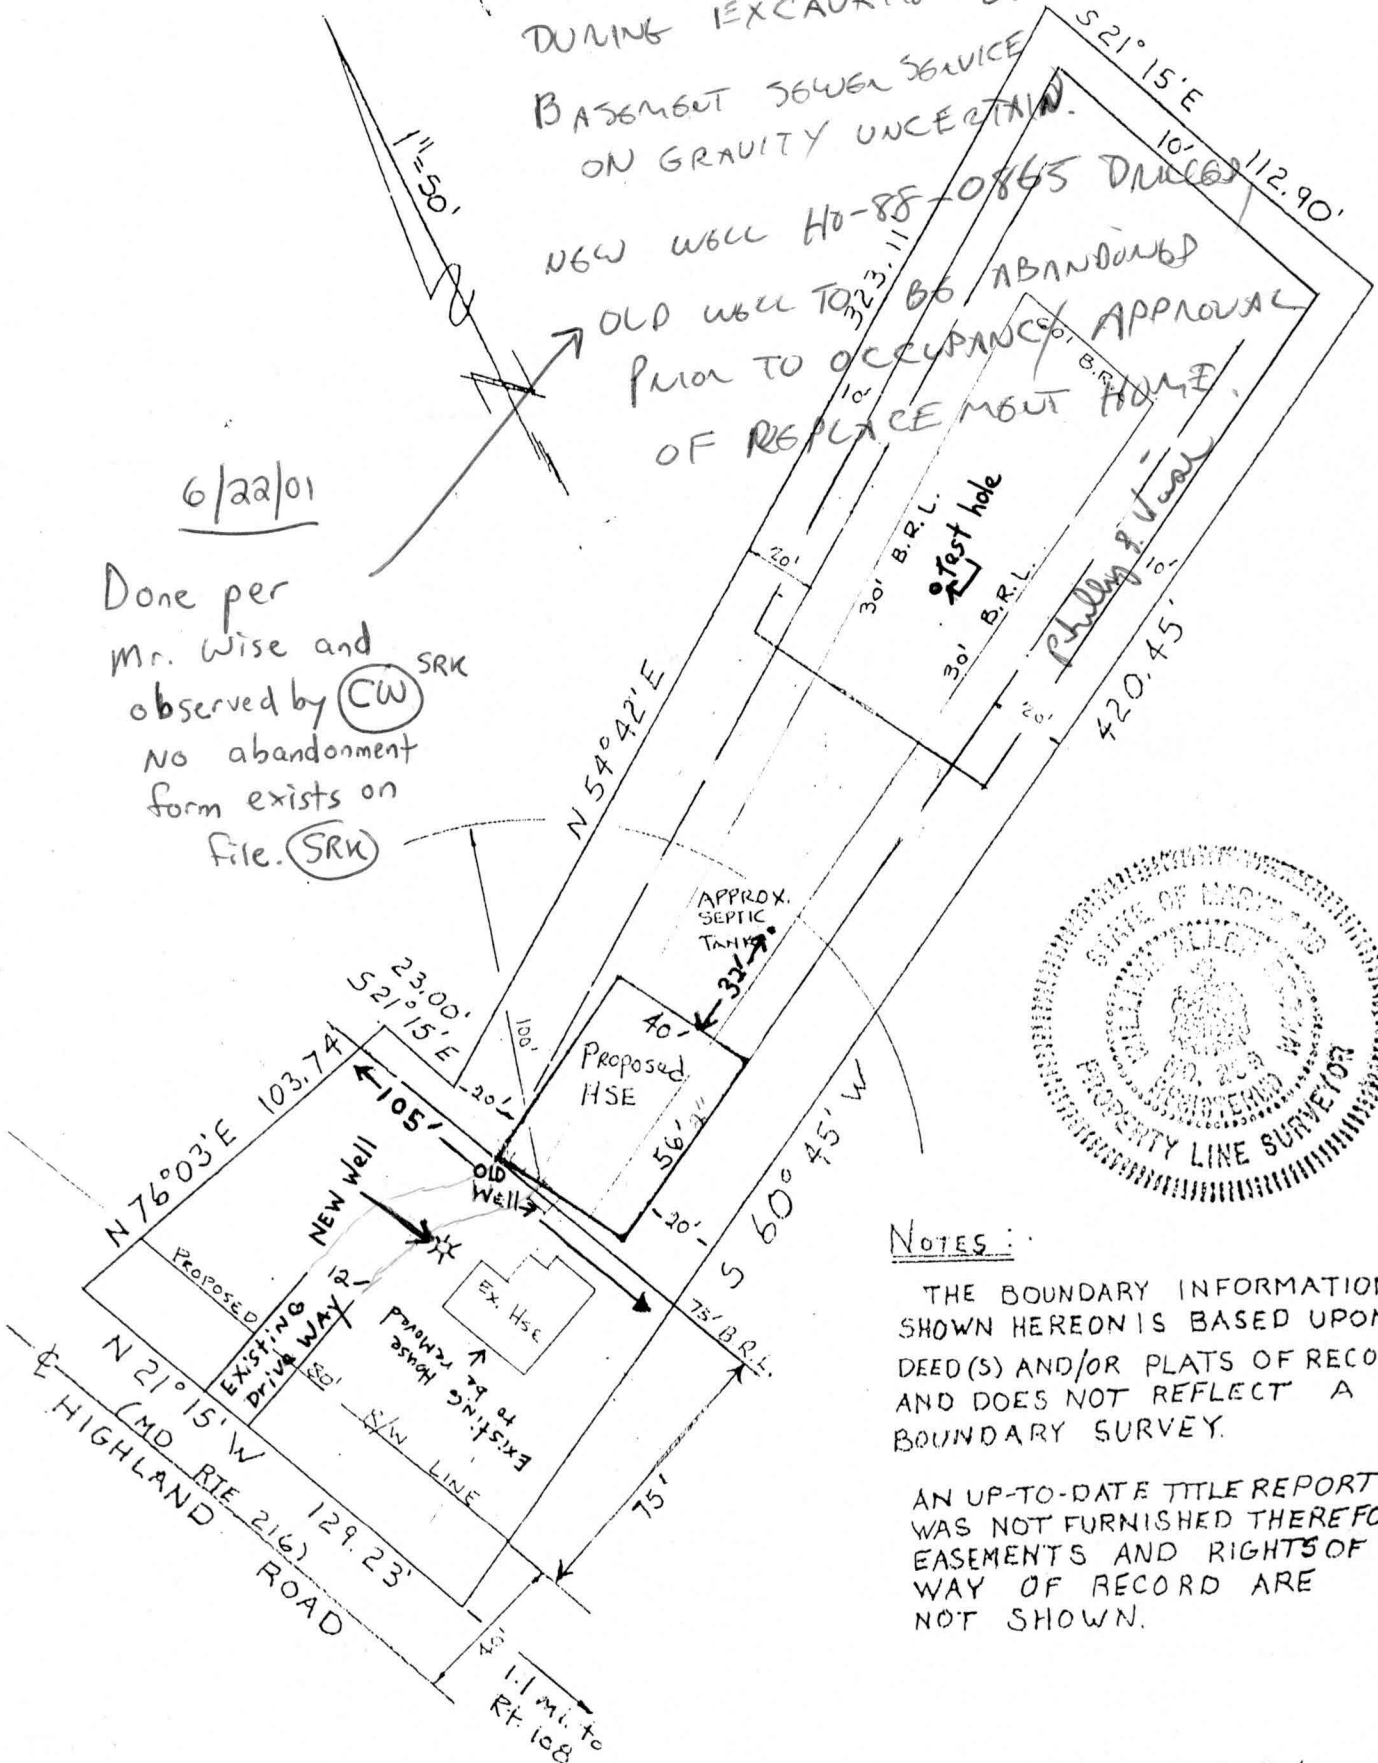 DURING
BASEMENT SEWER SERVICE
ON GRAVITY UNCERTAIN.
NEW WELL HO-88-0865 DRILLED
OLD WELL TO BE ABANDONED
PRIOR TO OCCUPANCY APPROVAL
OF REPLACEMENT HOME.
1"=50'
6/22/01
Done per
Mr. Wise and
observed by CW SRK
No abandonment
form exists on
file. SRK
S 21° 15' E
112.90'
10'
323.11'
10'
60' B.R.L.
30' B.R.L.
Test hole
30' B.R.L.
10'
20'
20'
420.45'
N 54° 42' E
APPROX.
SEPTIC
TANK
32'
23.00'
S 21° 15' E
100'
40'
PROPOSED
HSE
56'
20'
20'
S 60° 45' W
N 76° 03' E 103.74'
105'
NEW Well
OLD
Well
PROPOSED
80'
R/W
LINE
12'
EXISTING
Drive WAY
EX. HSE
EXISTING House
to be removed
75' B.R.L.
75'
N 21° 15' W 129.23'
℄ HIGHLAND ROAD
(MD RTE 216)
40'
1.1 mi. to
Rt. 108
STATE OF MARYLAND
REGISTERED
PROPERTY LINE SURVEYOR
NOTES:
THE BOUNDARY INFORMATION
SHOWN HEREON IS BASED UPON
DEED(S) AND/OR PLATS OF RECO
AND DOES NOT REFLECT A
BOUNDARY SURVEY.
AN UP-TO-DATE TITLE REPORT
WAS NOT FURNISHED THEREFO
EASEMENTS AND RIGHTS OF
WAY OF RECORD ARE
NOT SHOWN.